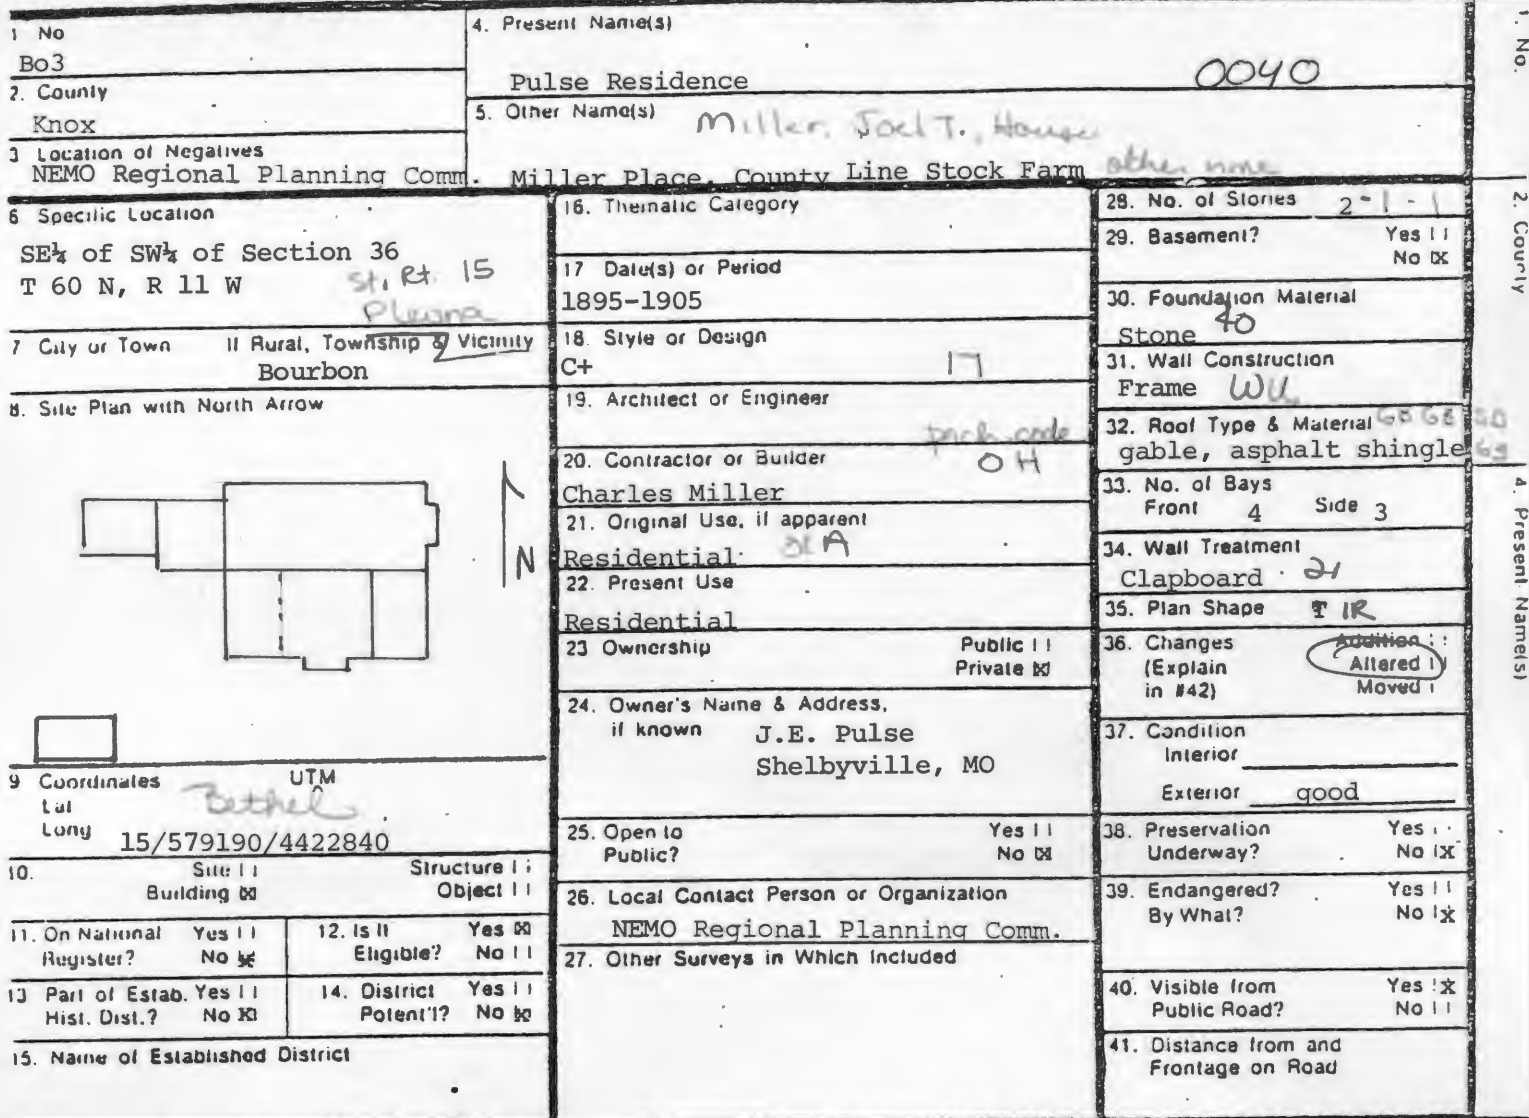 1 No
Bo3
2. County
Knox
3 Location of Negatives
NEMO Regional Planning Comm.
4. Present Name(s)
Pulse Residence
0040
5. Other Name(s)
Miller, Joel T., House
Miller Place, County Line Stock Farm
other name
6 Specific Location
SE¼ of SW¼ of Section 36
T 60 N, R 11 W
St. Rt. 15
Plevna
7 City or Town If Rural, Township & Vicinity
Bourbon
8. Site Plan with North Arrow
N
9 Coordinates UTM
Lat
Long
Bethel
15/579190/4422840
10. Site Structure
Building ☒ Object
11. On National Register? Yes No ☒
12. Is It Eligible? Yes ☒ No
13 Part of Estab. Hist. Dist.? Yes No ☒
14. District Potent'l? Yes No ☒
15. Name of Established District
16. Thematic Category
17 Date(s) or Period
1895-1905
18. Style or Design
C+ 17
19. Architect or Engineer
20. Contractor or Builder
OH
Charles Miller
21. Original Use, if apparent
Residential
22. Present Use
Residential
23 Ownership Public
Private ☒
24. Owner's Name & Address,
if known
J.E. Pulse
Shelbyville, MO
25. Open to Public? Yes
No ☒
26. Local Contact Person or Organization
NEMO Regional Planning Comm.
27. Other Surveys in Which Included
28. No. of Stories 2-1-1
29. Basement? Yes
No ☒
30. Foundation Material
Stone 40
31. Wall Construction
Frame
32. Roof Type & Material
gable, asphalt shingle
33. No. of Bays
Front 4 Side 3
34. Wall Treatment
Clapboard 21
35. Plan Shape T IR
36. Changes Addition
(Explain Altered
in #42) Moved
37. Condition
Interior
Exterior good
38. Preservation Yes
Underway? No X
39. Endangered? Yes
By What? No X
40. Visible from Yes X
Public Road? No
41. Distance from and
Frontage on Road
1. No.
2. County
4. Present Name(s)